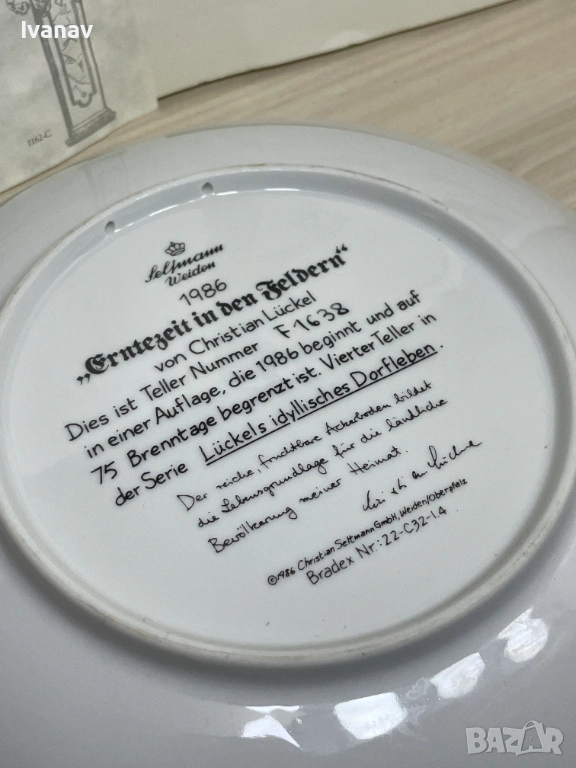 Ivanav
1162-C
Seltmann
Weiden
1986
„Erntezeit in den Feldern“
von Christian Lückel
Dies ist Teller Nummer F1638
in einer Auflage, die 1986 beginnt und auf
75 Brenntage begrenzt ist. Vierter Teller in
der Serie Lückels idyllisches Dorfleben.
Der reiche, fruchtbare Ackerboden bildet
die Lebensgrundlage für die ländliche
Bevölkerung meiner Heimat.
©1986 Christian Seltmann GmbH, Weiden/Oberpfalz
Bradex Nr.: 22-C32-1.4
BAZAR